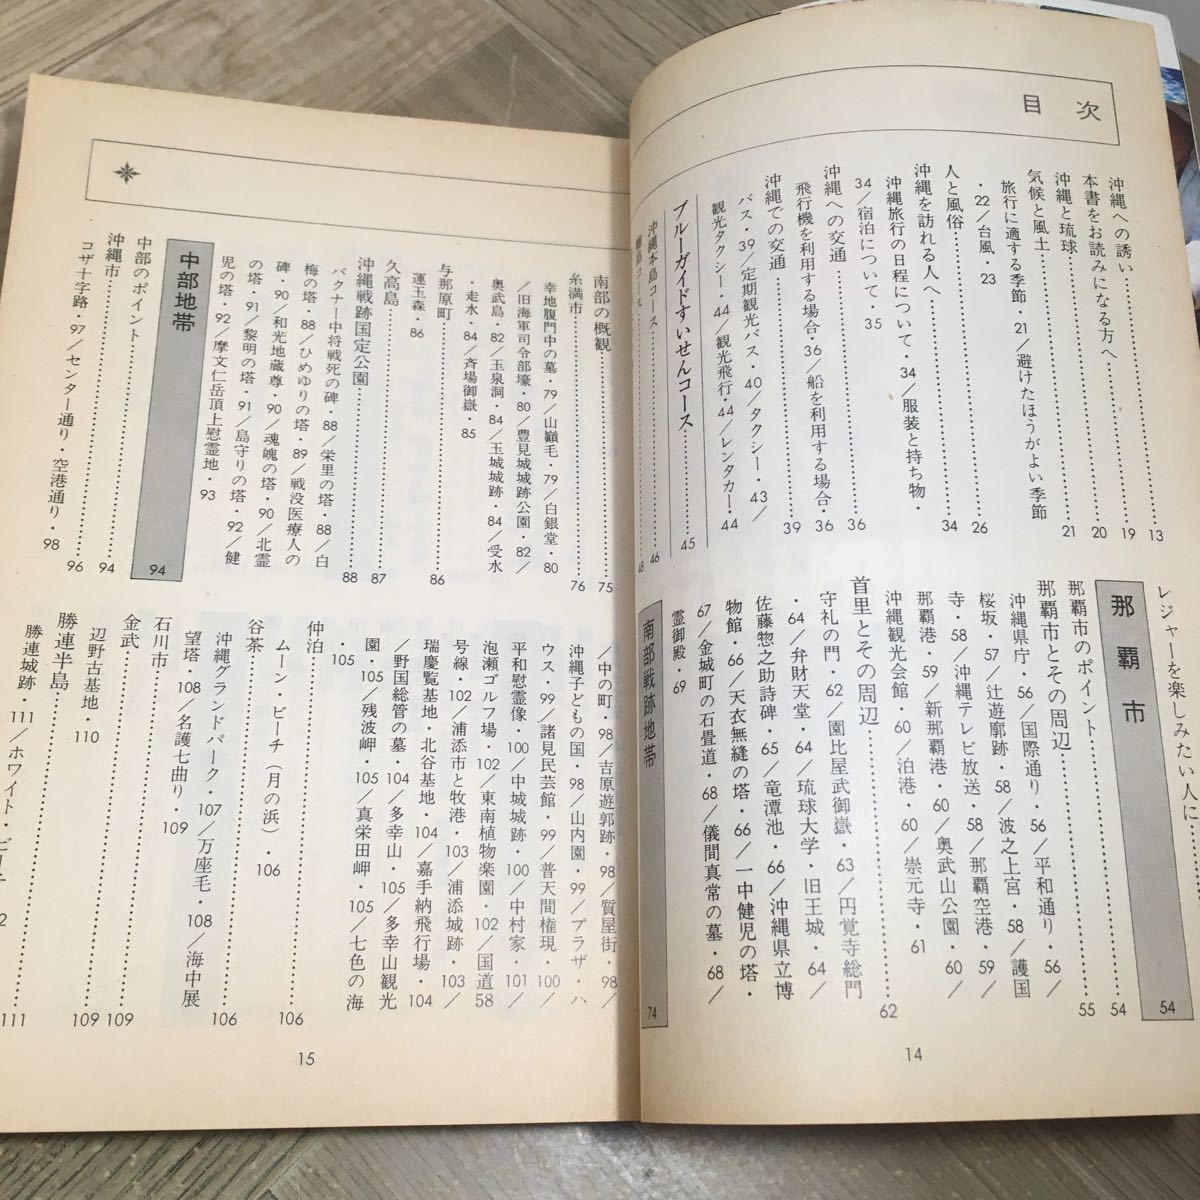 目次
沖縄への誘い……13
本書をお読みになる方へ……19
沖縄と琉球……20
気候と風土……21
旅行に適する季節・21／避けたほうがよい季節
・22／台風・23
人と風俗……26
沖縄を訪れる人へ……34
沖縄旅行の日程について・34／服装と持ち物・
34／宿泊について・35
沖縄への交通……36
飛行機を利用する場合・36／船を利用する場合・36
沖縄での交通……39
バス・39／定期観光バス・40／タクシー・43／
観光タクシー・44／観光飛行・44／レンタカー・44
ブルーガイドすいせんコース……45
沖縄本島コース……46
離島コース……48
レジャーを楽しみたい人に……
那覇市 54
那覇市のポイント……54
那覇市とその周辺……55
沖縄県庁・56／国際通り・56／平和通り・56／
桜坂・57／辻遊廓跡・57／波之上宮・58／護国
寺・58／沖縄テレビ放送・58／那覇空港・59／
那覇港・59／新那覇港・60／奥武山公園・60／
沖縄観光会館・60／泊港・60／崇元寺・61
首里とその周辺……62
守礼の門・62／園比屋武御嶽・63／円覚寺総門
・64／弁財天堂・64／琉球大学・旧王城・64／
佐藤惣之助詩碑・65／竜潭池・66／沖縄県立博
物館・66／天衣無縫の塔・66／一中健児の塔・
67／金城町の石畳道・68／儀間真常の墓・68／
霊御殿・69
南部戦跡地帯 74
14
南部の概観……75
糸満市……76
幸地腹門中の墓・79／山巓毛・79／白銀堂・80
／旧海軍司令部壕・80／豊見城城跡公園・82／
奥武島・82／玉泉洞・84／玉城城跡・84／受水
・走水・84／斎場御嶽・85
与那原町……86
運玉森・86
久高島……87
沖縄戦跡国定公園……88
バクナー中将戦死の碑・88／栄里の塔・88／白
梅の塔・88／ひめゆりの塔・89／戦没医療人の
碑・90／和光地蔵尊・90／魂魄の塔・90／北霊
の塔・91／黎明の塔・91／島守りの塔・92／健
児の塔・92／摩文仁岳頂上慰霊地・93
中部地帯 94
中部のポイント……94
沖縄市……96
コザ十字路・97／センター通り・空港通り・98
／中の町・98／吉原遊郭跡・98／質屋街・98／
沖縄子どもの国・98／山内園・99／プラザ・ハ
ウス・99／諸見民芸館・99／普天間権現・100／
平和慰霊像・100／中城城跡・100／中村家・101／
泡瀬ゴルフ場・102／東南植物楽園・102／国道58
号線・102／浦添市と牧港・103／浦添城跡・103／
瑞慶覧基地・北谷基地・104／嘉手納飛行場・104
／野国総管の墓・104／多幸山・105／多幸山観光
園・105／残波岬・105／真栄田岬・105／七色の海
・105
仲泊……106
ムーン・ビーチ（月の浜）・106
谷茶……106
沖縄グランドパーク・107／万座毛・108／海中展
望塔・108／名護七曲り・109
石川市……109
金武……109
辺野古基地・110
勝連半島……111
勝連城跡・111／ホワイト・ビーチ
15